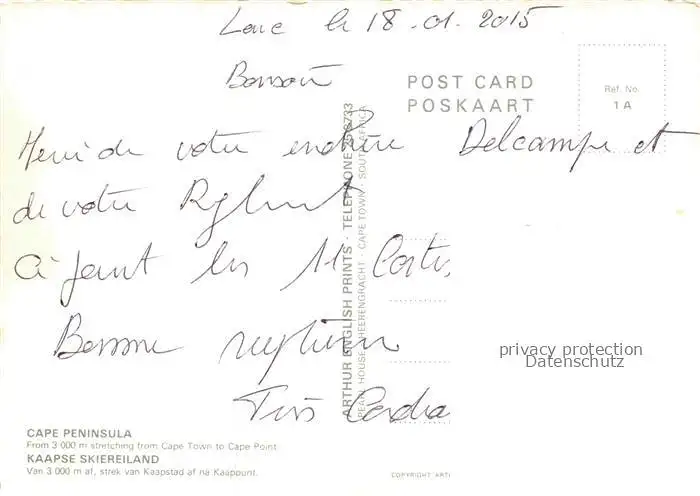 le 18.01.2015
Bonsoir
POST CARD
POSKAART
Ref. No.
1 A
Merci de votre enchère Delcampe et
de votre Rglmt
Ci joint les 11 Cartes
Bonne réception
Très Cordia
ARTHUR ENGLISH PRINTS · TELEPHONE
PEARL HOUSE · HEERENGRACHT · CAPE TOWN · SOUTH AFRICA
privacy protection
Datenschutz
CAPE PENINSULA
From 3 000 m stretching from Cape Town to Cape Point.
KAAPSE SKIEREILAND
Van 3 000 m af, strek van Kaapstad af na Kaappunt.
COPYRIGHT ARTH